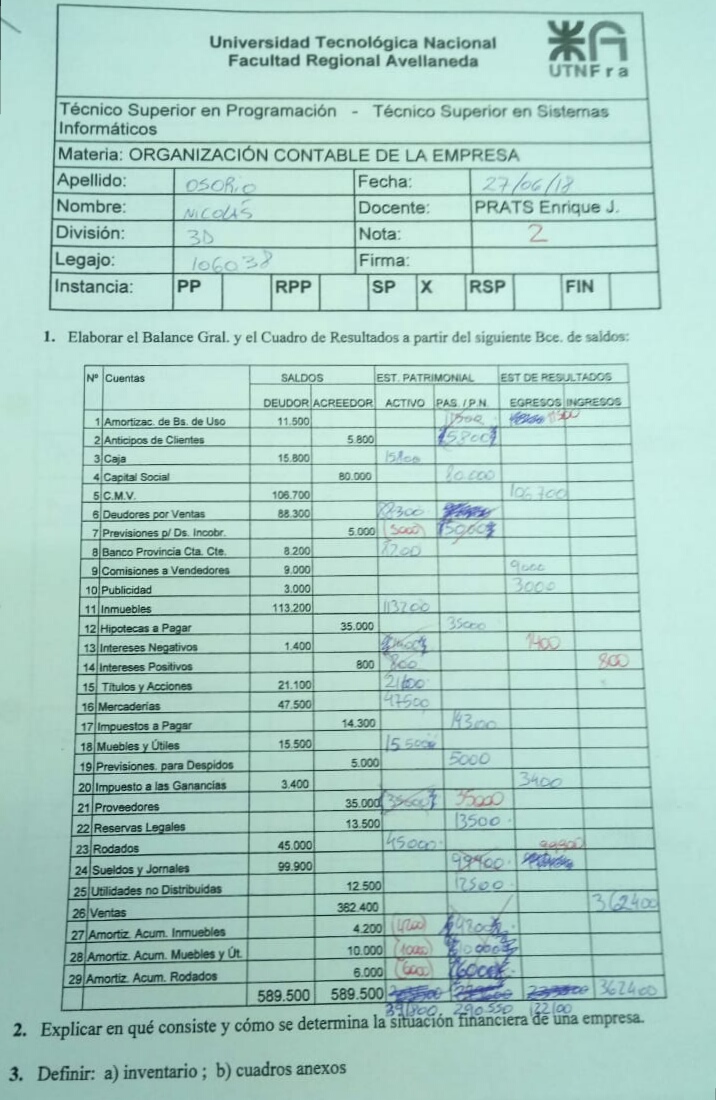 Universidad Tecnológica Nacional
Facultad Regional Avellaneda
UTNFra
Técnico Superior en Programación - Técnico Superior en Sistemas
Informáticos
Materia: ORGANIZACIÓN CONTABLE DE LA EMPRESA
Apellido: OSORIO Fecha: 27/06/18
Nombre: NICOLÁS Docente: PRATS Enrique J.
División: 3D Nota: 2
Legajo: 106038 Firma:
Instancia: PP RPP SP X RSP FIN
1. Elaborar el Balance Gral. y el Cuadro de Resultados a partir del siguiente Bce. de saldos:
Nº Cuentas SALDOS EST. PATRIMONIAL EST DE RESULTADOS
DEUDOR ACREEDOR ACTIVO PAS. / P.N. EGRESOS INGRESOS
1 Amortizac. de Bs. de Uso 11.500
2 Anticipos de Clientes 5.800 5.800
3 Caja 15.800 15.800
4 Capital Social 80.000 80.000
5 C.M.V. 106.700 106.700
6 Deudores por Ventas 88.300 88300
7 Previsiones p/ Ds. Incobr. 5.000 (5000)
8 Banco Provincia Cta. Cte. 8.200 8200
9 Comisiones a Vendedores 9.000 9000
10 Publicidad 3.000 3000
11 Inmuebles 113.200 113200
12 Hipotecas a Pagar 35.000 35000
13 Intereses Negativos 1.400 1400
14 Intereses Positivos 800 800 800
15 Títulos y Acciones 21.100 21100
16 Mercaderías 47.500 47500
17 Impuestos a Pagar 14.300 14300
18 Muebles y Útiles 15.500 15500
19 Previsiones. para Despidos 5.000 5000
20 Impuesto a las Ganancias 3.400 3400
21 Proveedores 35.000 (35000) 35000
22 Reservas Legales 13.500 13500
23 Rodados 45.000 45000
24 Sueldos y Jornales 99.900 99900 99900
25 Utilidades no Distribuidas 12.500 12500
26 Ventas 362.400 362400
27 Amortiz. Acum. Inmuebles 4.200 (4200) 4200
28 Amortiz. Acum. Muebles y Út. 10.000 (10000) 10000
29 Amortiz. Acum. Rodados 6.000 (6000) 6000
589.500 589.500 362400
391800 290550 122100
2. Explicar en qué consiste y cómo se determina la situación financiera de una empresa.
3. Definir: a) inventario ; b) cuadros anexos